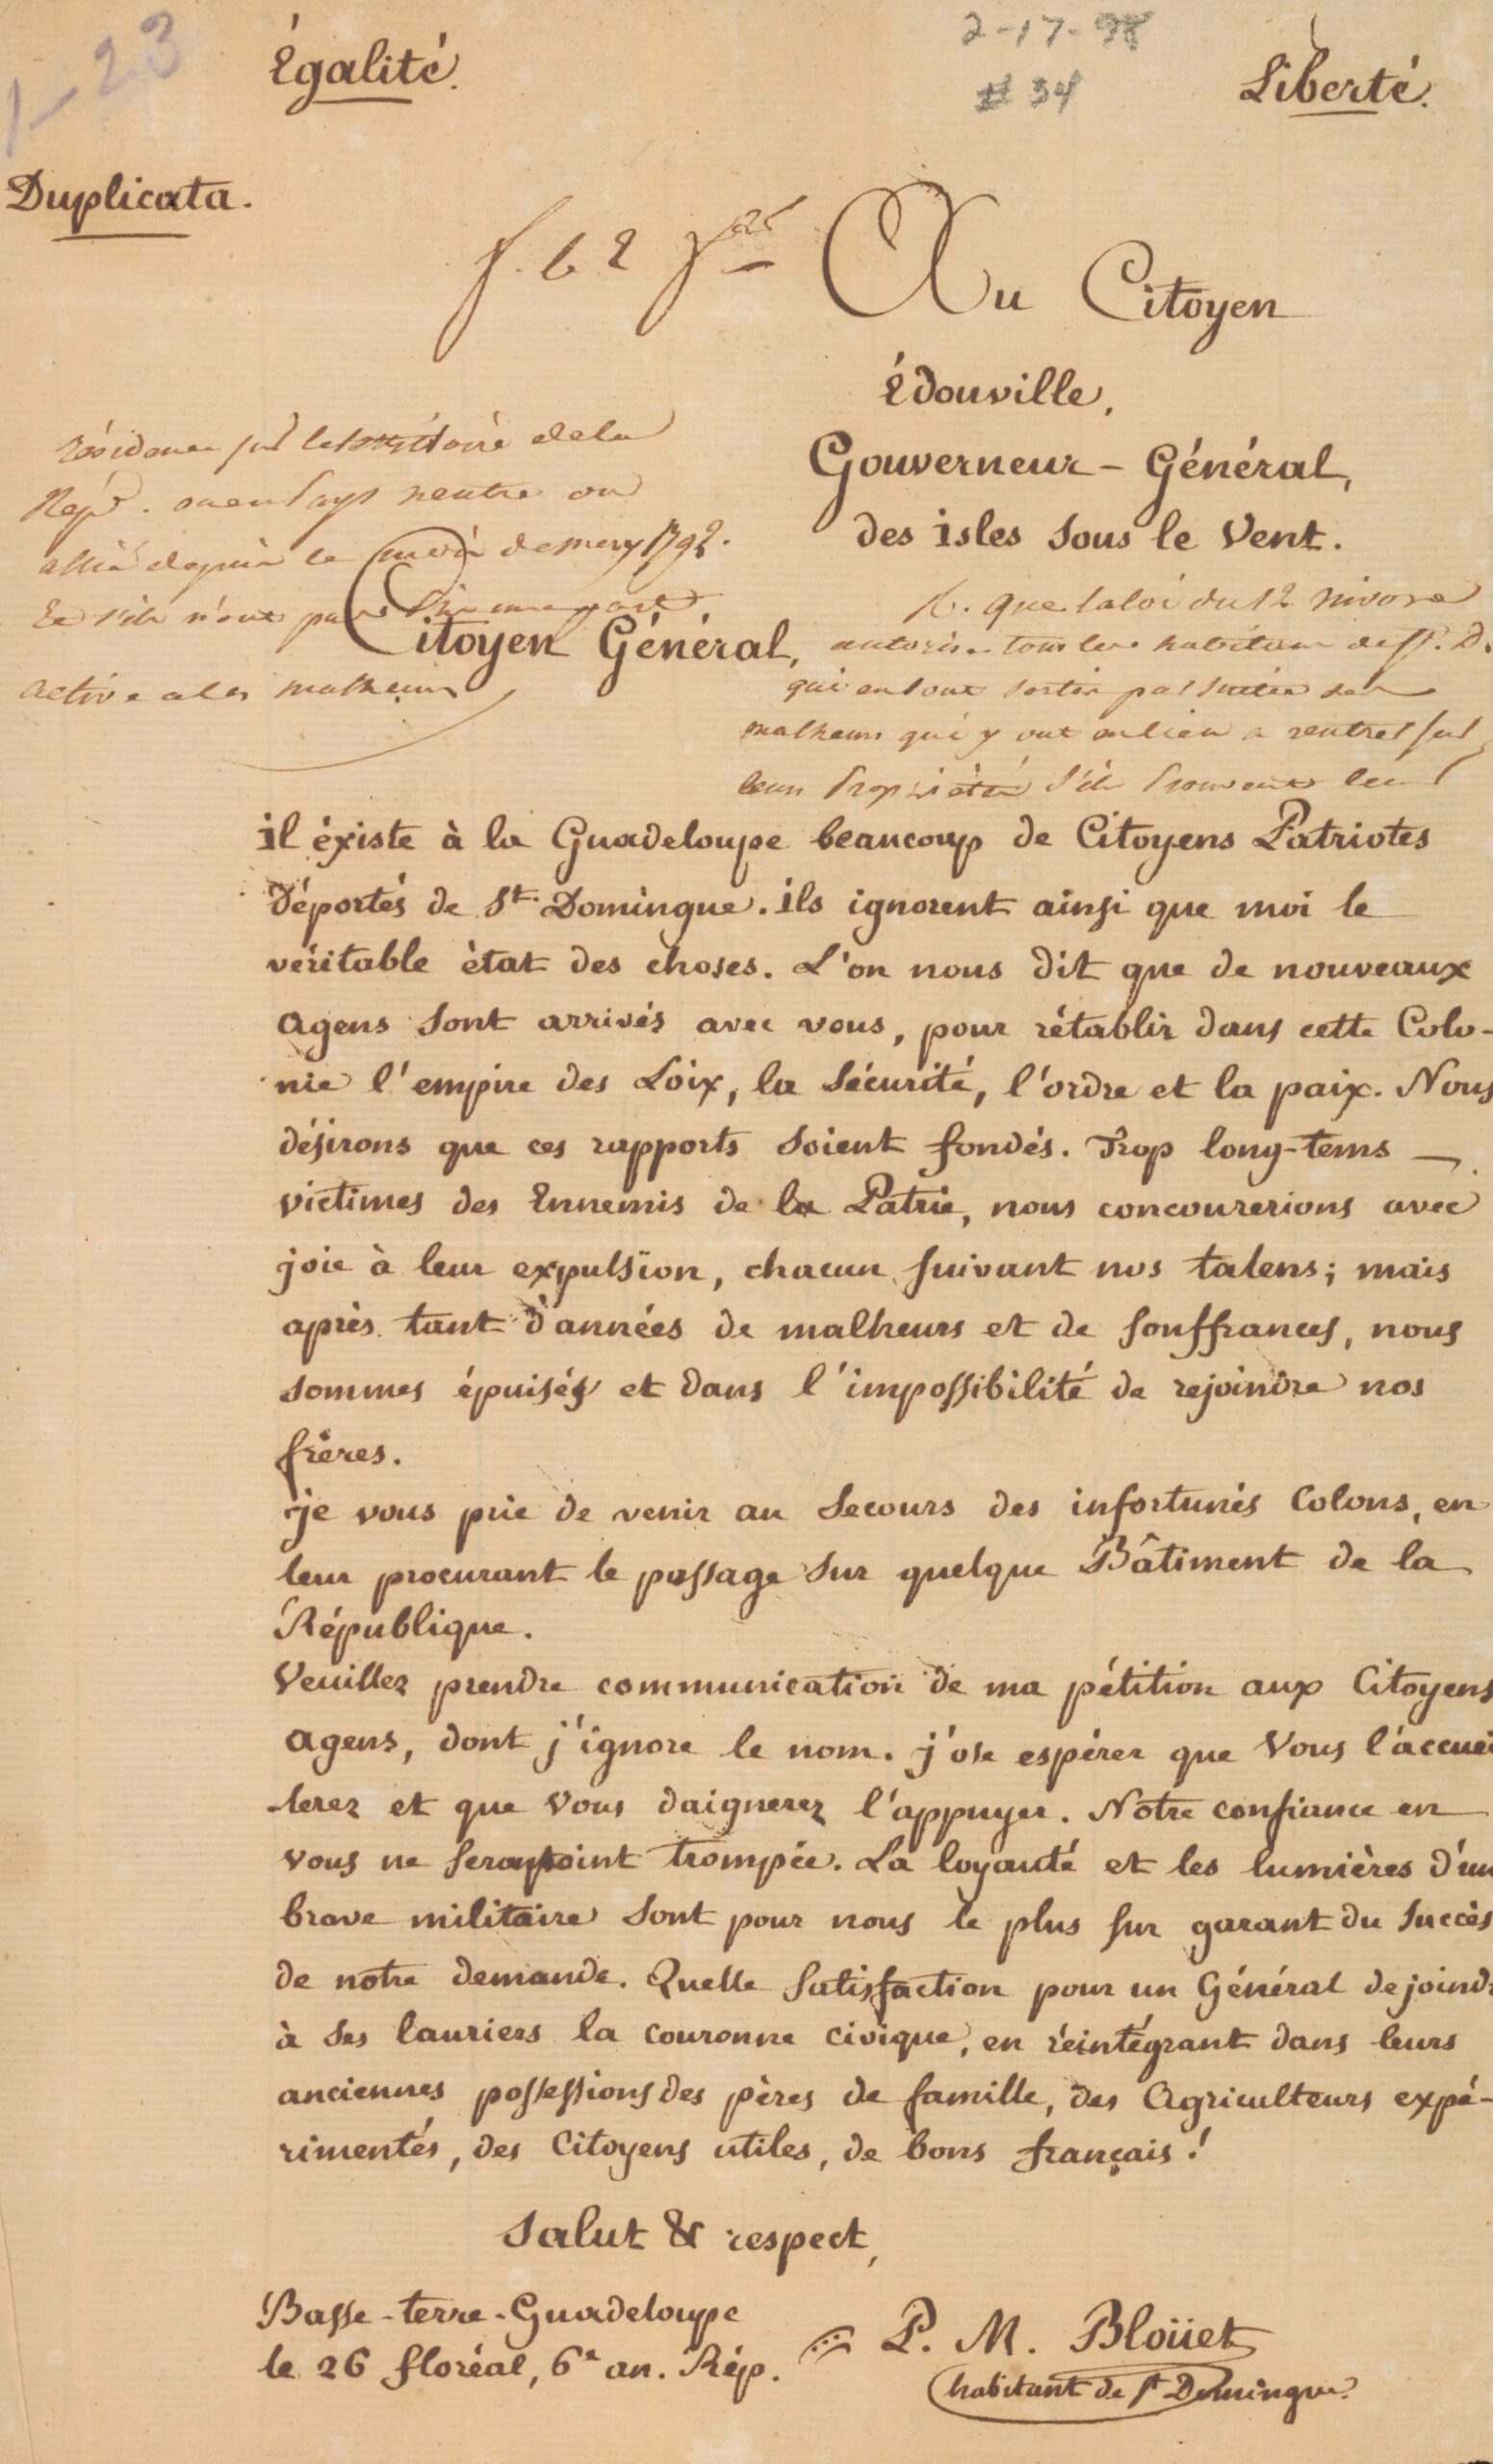 1-23
Égalité.
2-17-98
# 34
Liberté.
Duplicata.
Au Citoyen
Édouville,
Gouverneur-Général,
des isles sous le Vent.
R. que la loi du 12 nivose
autorise tous les habitans de St. D.
qui en sont sortis par suite des
malheurs qui y ont eu lieu a rentrer sur
leurs propriétés s'ils prouvent leur
résidence sur le territoire de la
Rep. ou en pays neutre ou
allié depuis le mois de 1792.
Et s'ils n'ont pas pris une part
active a les malheurs
Citoyen Général,
il éxiste à la Guadeloupe beaucoup de Citoyens Patriotes
déportés de St. Domingue. ils ignorent ainsi que moi le
véritable état des choses. L'on nous dit que de nouveaux
agens sont arrivés avec vous, pour rétablir dans cette Colo-
nie l'empire des Loix, la sécurité, l'ordre et la paix. Nous
désirons que ces rapports soient fondés. Trop long-tems
victimes des Ennemis de la Patrie, nous concourerions avec
joie à leur expulsion, chacun suivant nos talens; mais
après tant d'années de malheurs et de souffrances, nous
sommes épuisés et dans l'impossibilité de rejoindre nos
frères.
je vous prie de venir au secours des infortunés Colons, en
leur procurant le passage sur quelque Bâtiment de la
République.
Veuillez prendre communication de ma pétition aux Citoyens
agens, dont j'ignore le nom. j'ose espérer que Vous l'accueil
-lerez et que Vous daignerez l'appuyer. Notre confiance en
vous ne sera point trompée. La loyauté et les lumières d'un
brave militaire sont pour nous le plus sur garant du succès
de notre demande. Quelle satisfaction pour un Général de joindr
à ses lauriers la couronne civique, en réintégrant dans leurs
anciennes possessions des pères de famille, des Agriculteurs expé-
rimentés, des Citoyens utiles, de bons français!
Salut & respect,
Basse-terre-Guadeloupe
le 26 floréal, 6e an. Rép.
P. M. Bloüet
habitant de St Domingue.